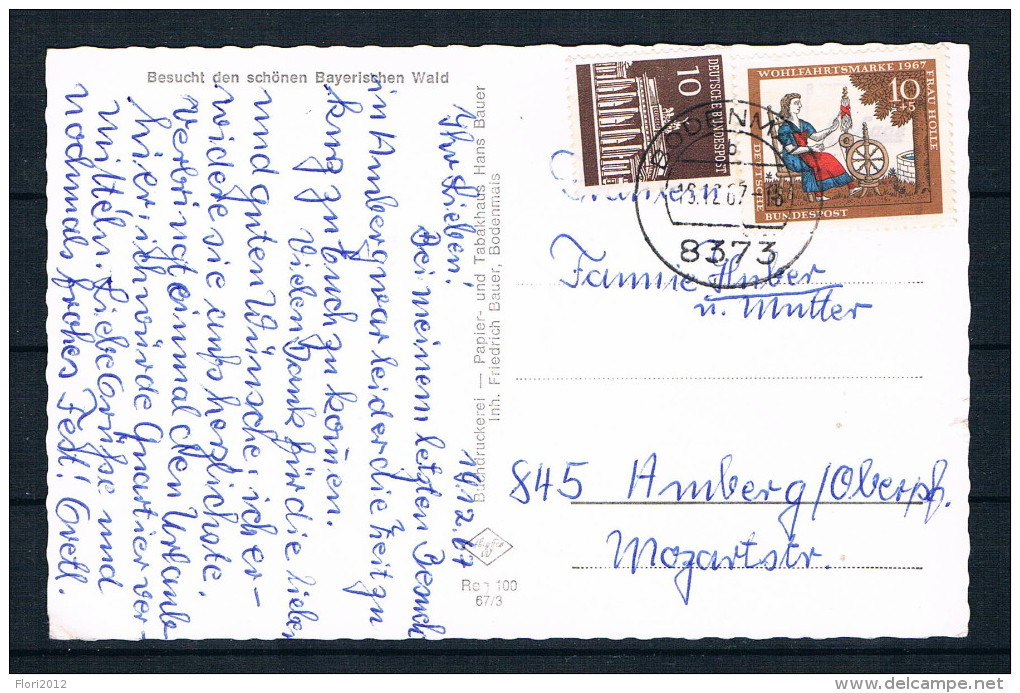 Besucht den schönen Bayerischen Wald
19.12.67
Ihr Lieben!
Bei meinem letzten Besuch
in Amberg war leider die Zeit zu
kurz zu Euch zu kommen.
Vielen Dank für die lieben
und guten Wünsche. ich er-
widere sie aufs herzlichste.
verbringt einmal den Urlaub
hier, ich würde Quartier ver-
mitteln. Liebe Grüße und
nochmals frohes Fest! Gretl.
Buchdruckerei — Papier- und Tabakhaus Hans Bauer
Inh. Friedrich Bauer, Bodenmais
Reg 100
67/3
10
DEUTSCHE BUNDESPOST
WOHLFAHRTSMARKE 1967
10+5
FRAU HOLLE
DEUTSCHE
BUNDESPOST
BODENM
b
8373
Familie Huber
u. Mutter
845 Amberg/Oberpf.
Mozartstr.
Flori2012
www.delcampe.net